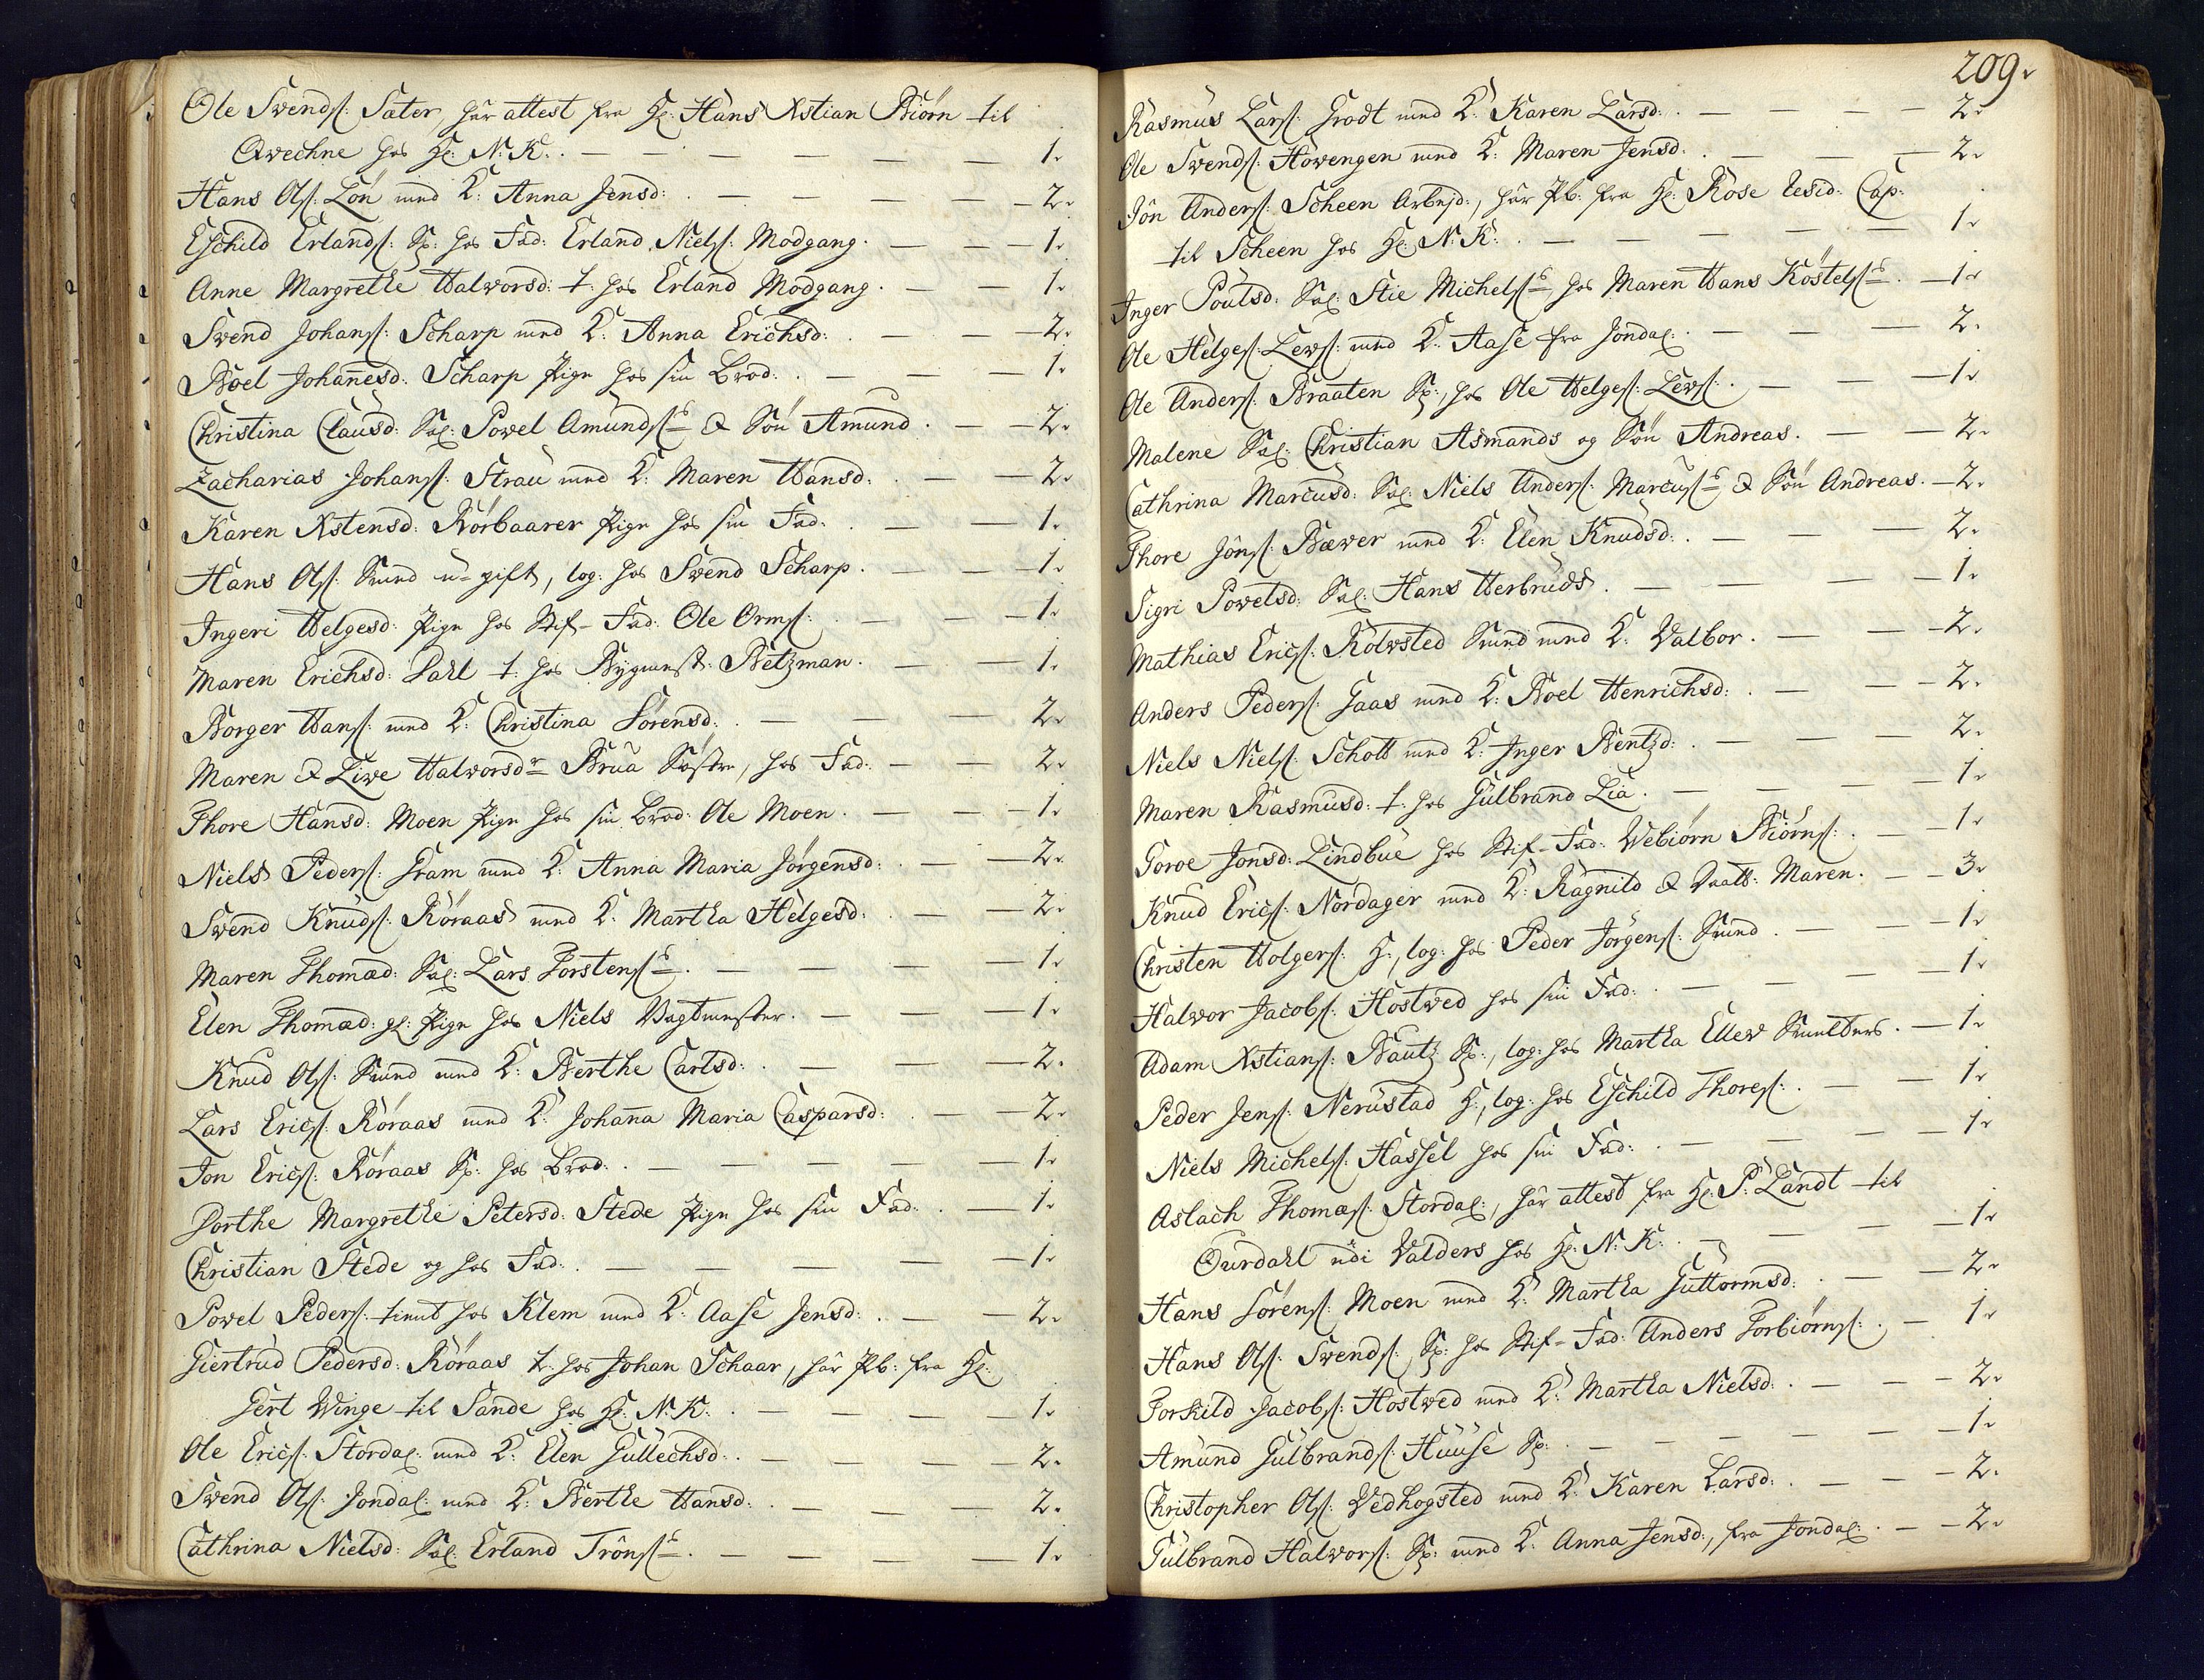 Ole Svends: Sater, har attest fra H: Hans Xstian Biörn til
Qvechne hos H: N: K: . — — — — — — 1.
Hans Ols: Lön med K: Anna Jensd: . — — — — 2.
Eschild Erlands: Sp: hos Fad: Erland Niels: Modgang. — — 1.
Anne Margrethe Halvorsd: t: hos Erland Modgang. — — 1.
Svend Johans: Scharp med K: Anna Erichsd: . — — 2.
Boel Johanesd: Scharp Pige hos sin Brod: . — — — 1.
Christina Clausd: Sal: Povel Amunds: & Sön Amund. — — 2.
Zacharias Johans: Strau med K: Maren Hansd: . — — 2.
Karen Xstensd: Rörbaarer Pige hos sin Fad: . — — 1.
Hans Ols: Smed u-gift, log: hos Svend Scharp. — — 1.
Ingeri Helgesd: Pige hos Stif-Fad: Ole Orms: . — — — 1.
Maren Erichsd: Dahl t: hos Bygmest: Betzman. — — 1.
Borger Hans: med K: Christina Sörensd: . — — — 2.
Maren & Live Halvorsdr Brua Söstre, hos Fad: — — 2.
Thore Hansd: Moen Pige hos sin Brod: Ole Moen. — — — 1.
Niels Peders: Gram med K: Anna Maria Jörgensd: . — — 2.
Svend Knuds: Röraas med K: Martha Helgesd: . — — 2.
Maren Thomæd: Sal: Lars Torstens: . — — — — 1.
Elen Thomæd: gl: Pige hos Niels Vagtmester. — — — 1.
Knud Ols: Smed med K: Berthe Carlsd: . — — — 2.
Lars Erics: Röraas med K: Johana Maria Caspersd: . — — 2.
Jon Erics: Röraas Sp: hos Brod: . — — — — — 1.
Dorthe Margrethe Petersd: Stede Pige hos sin Fad: . — 1.
Christian Stede og hos Fad: . — — — — — 1.
Povel Peders: tient hos Klem med K: Aase Jensd: . — — 2.
Giertrud Pedersd: Röraas t: hos Johan Schaar, har Pb: fra H:
Gert Winge til Sande hos H: N: K: . — — — — 1.
Ole Erics: Stordal: med K: Elen Gullechsd: . — — — — 2.
Svend Ols: Jondal: med K: Berthe Hansd: . — — — 2.
Cathrina Nielsd: Sal: Erland Tröns: . — — — — 1.
209.
Rasmus Lars: Grodt med K: Karen Larsd: . — — — 2.
Ole Svends: Hovengen med K: Maren Jensd: . — — — 2.
Jön Anders: Scheen Arbejd:, har Pb: fra H: Rose Resid: Cap:
til Scheen hos H: N: K: . — — — — — 1.
Inger Poulsd: Sal: Stie Michels: hos Maren Hans Köstels: . — 1.
Ole Helges: Levs: med K: Aase fra Jondal: . — — — 2.
Ole Anders: Braaten Sp:, hos Ole Helges: Levs: . — — — 1.
Malene Sal: Christian Asmands og Sön Andreas. — — 2.
Cathrina Marcusd: Sal: Niels Anders: Marcus: & Sön Andreas. — 2.
Thore Jöns: Bæver med K: Elen Knudsd: . — — — 2.
Sigri Povelsd: Sal: Hans Herbruds. — — — — 1.
Mathias Erics: Rolvsted Smed med K: Valbor. — — — 2.
Anders Peders: Gaas med K: Boel Henrichsd: . — — — 2.
Niels Niels: Schott med K: Inger Bentzd: . — — — — 2.
Maren Rasmusd: t: hos Gulbrand Lia. — — — — 1.
Goroe Jonsd: Lindbue hos Stif-Fad: Webiörn Biörns: . — — 1.
Knud Erics: Nordager med K: Ragnild & Datt: Maren. — — 3.
Christen Holgers: H:, log: hos Peder Jörgens: Smed . — — — 1.
Halvor Jacobs: Hostved hos sin Fad: . — — — — 1.
Adam Xstians: Bautz Sp:, log: hos Martha Ellev Smelters. — 1.
Peder Jens: Nerustad H:, log: hos Eschild Thores: . — — 1.
Niels Michels: Hassel hos sin Fad: . — — — — 1.
Aslach Thomæs: Stordal:, har attest fra H: P: Landt til
Ourdahl udi Valders hos H: N: K: . — — — — 1.
Hans Sörens: Moen med K: Martha Guttormsd: . — — 2.
Hans Ols: Svends: Sp: hos Stif-Fad: Anders Torbiörns: . — 1.
Torkild Jacobs: Hostved med K: Martha Nielsd: . — — — 2.
Amund Gulbrands: Huuse Sp: . — — — — — — 1.
Christopher Ols: Vedhogsted med K: Karen Larsd: . — — — 2.
Gulbrand Halvors: Sp: med K: Anna Jensd:, fra Jondal: . — — 2.